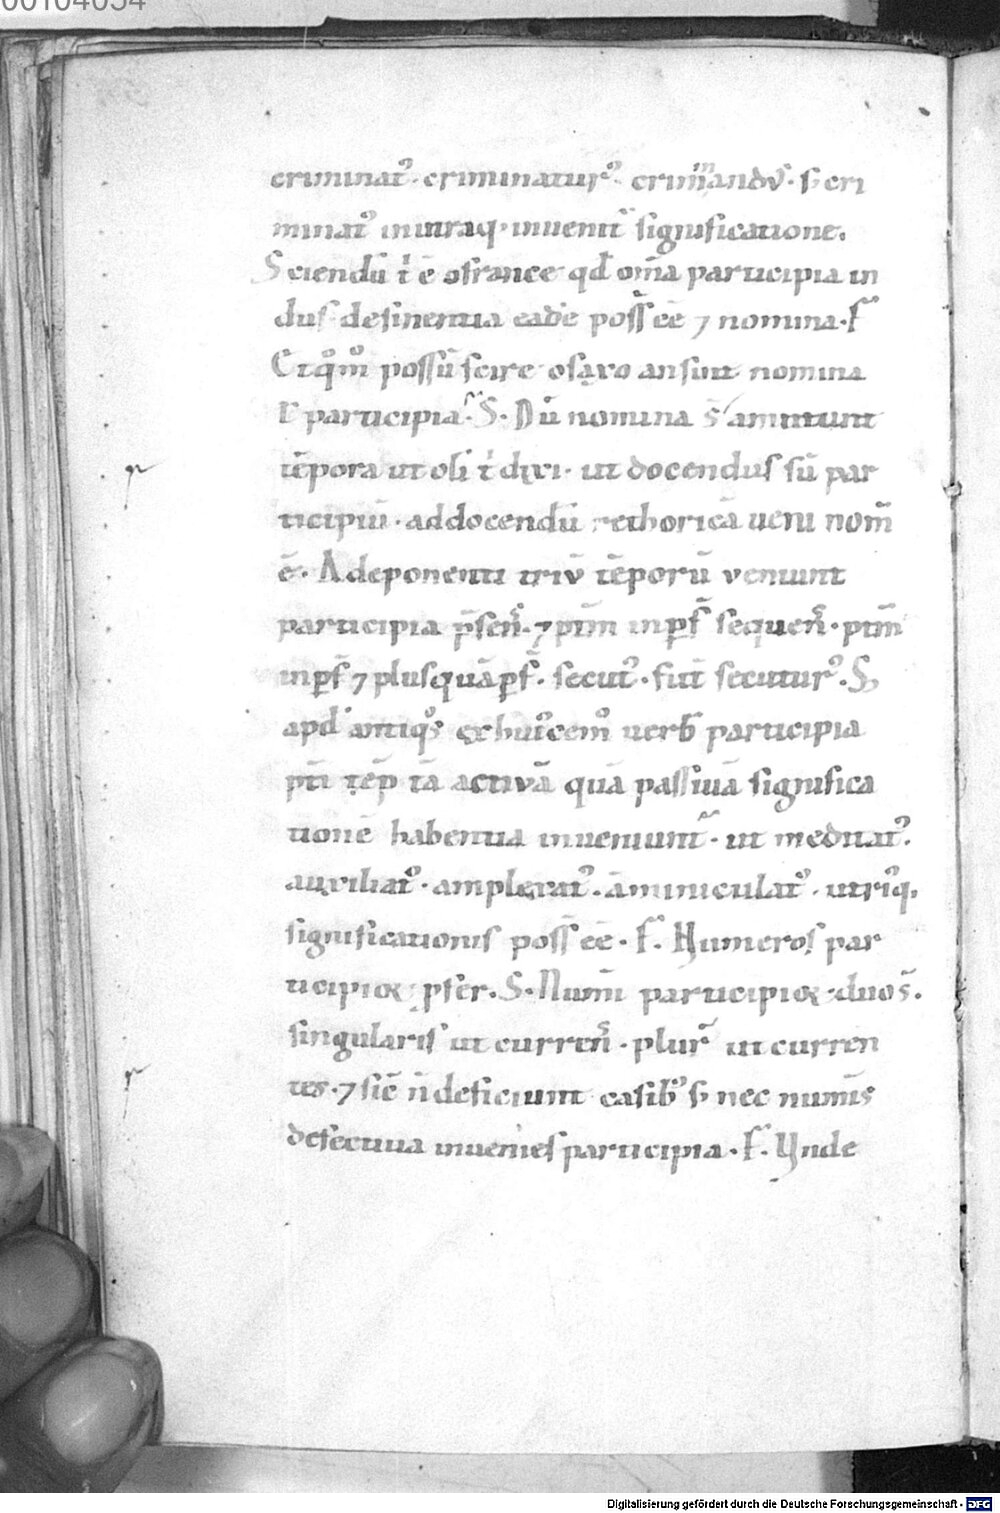 00104054
criminatꝰ. criminaturꝰ. criminandꝰ. ſ; cri
minatꝰ in utraq; inuenit᷑ ſignificatione.
Sciendū t̄ ē o franco qd̄ om̄ia participia in
duſ deſinentia eadē poſſ̄ ēē ⁊ nomina. F᷑
Et qͦm̊ poſſū ſcire o ſaxo an ſint nomina
ł participia. S᷑. Dū nomina sͣ amittunt
tēpora ut oli t̄ dixi. ut docenduſ ſū par
ticipiū. ad docendū rethoricā ueni nom̄
ē. A deponenti triū tēporū veniunt
participia p̄ſen̄. ⁊ p̄tm̄ inp̱f᷑ ſequen̄. p̄tm̄
inp̱f᷑ ⁊ pluſquāp̱f᷑. ſecutꝰ. fut̄ ſecuturꝰ. S;
apd̓ antiqͦs ex huiꝰcemͦ uerb̄ participia
p̄ti tēp̄ tā activā quā paſſiuā ſignifica
tionē habentia inueniunt᷑. ut meditatꝰ.
auxiliatꝰ. amplexatꝰ. āminiculatꝰ. utriꝰq;
ſignificationiſ poſſ̄ ēē. F᷑. Numeroſ par
ticipioꝝ p̱fer. S᷑. Num̄i participioꝝ duo s̄.
ſingulariſ ut curren̄. plur᷑ ut curren
tes. ⁊ ſic̄ n̄ deficiunt caſibꝰ ſ; nec num̄is
defectiua inuenieſ participia. F᷑. Unde
Digitalisierung gefördert durch die Deutsche Forschungsgemeinschaft - DFG